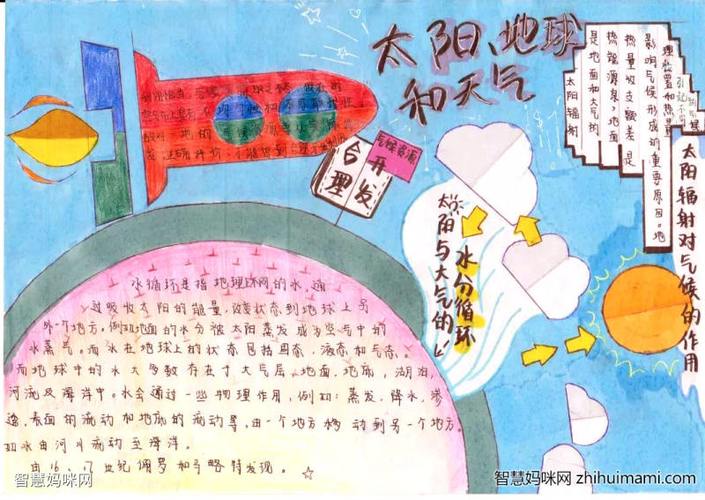 太阳、地球
和天气
气候资源
合理
开发
太阳与大气的
水分循环
太阳辐射对气候的作用
太阳辐射
是地面和大气的
热能源泉,地面
热量收支差额是
影响气候形成的重要原因。地
理位置和热量
水循环是指地理环网的水,通
过吸收太阳的能量,改变状态到地球上另
外一个地方。例如地面的水分被太阳蒸发成为空气中的
水蒸气。而水在地球上的状态包括固态、液态和气态。
而地球中的水大多数存在于大气层、地面、地底、湖泊、
河流及海洋中。水会通过一些物理作用,例如:蒸发、降水、渗
透、表面的流动和地底的流动等,由一个地方移动到另一个地方。
如水由河川流动至海洋。
由16、17世纪佩罗和马略特发现。
智慧妈咪网
智慧妈咪网 zhihuimami.com